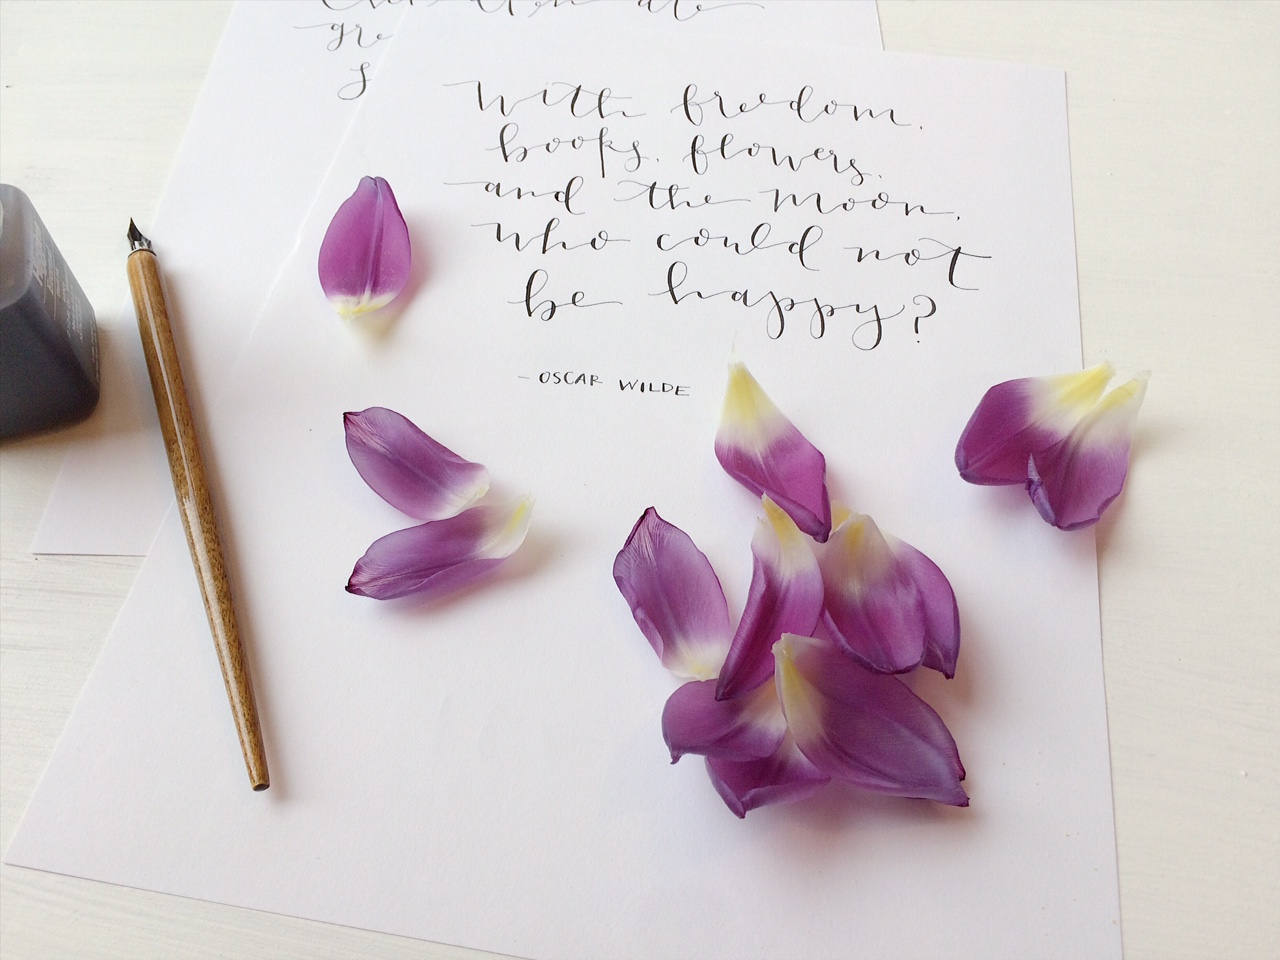 gre
With freedom,
books, flowers,
and the moon,
who could not
be happy?
- OSCAR WILDE